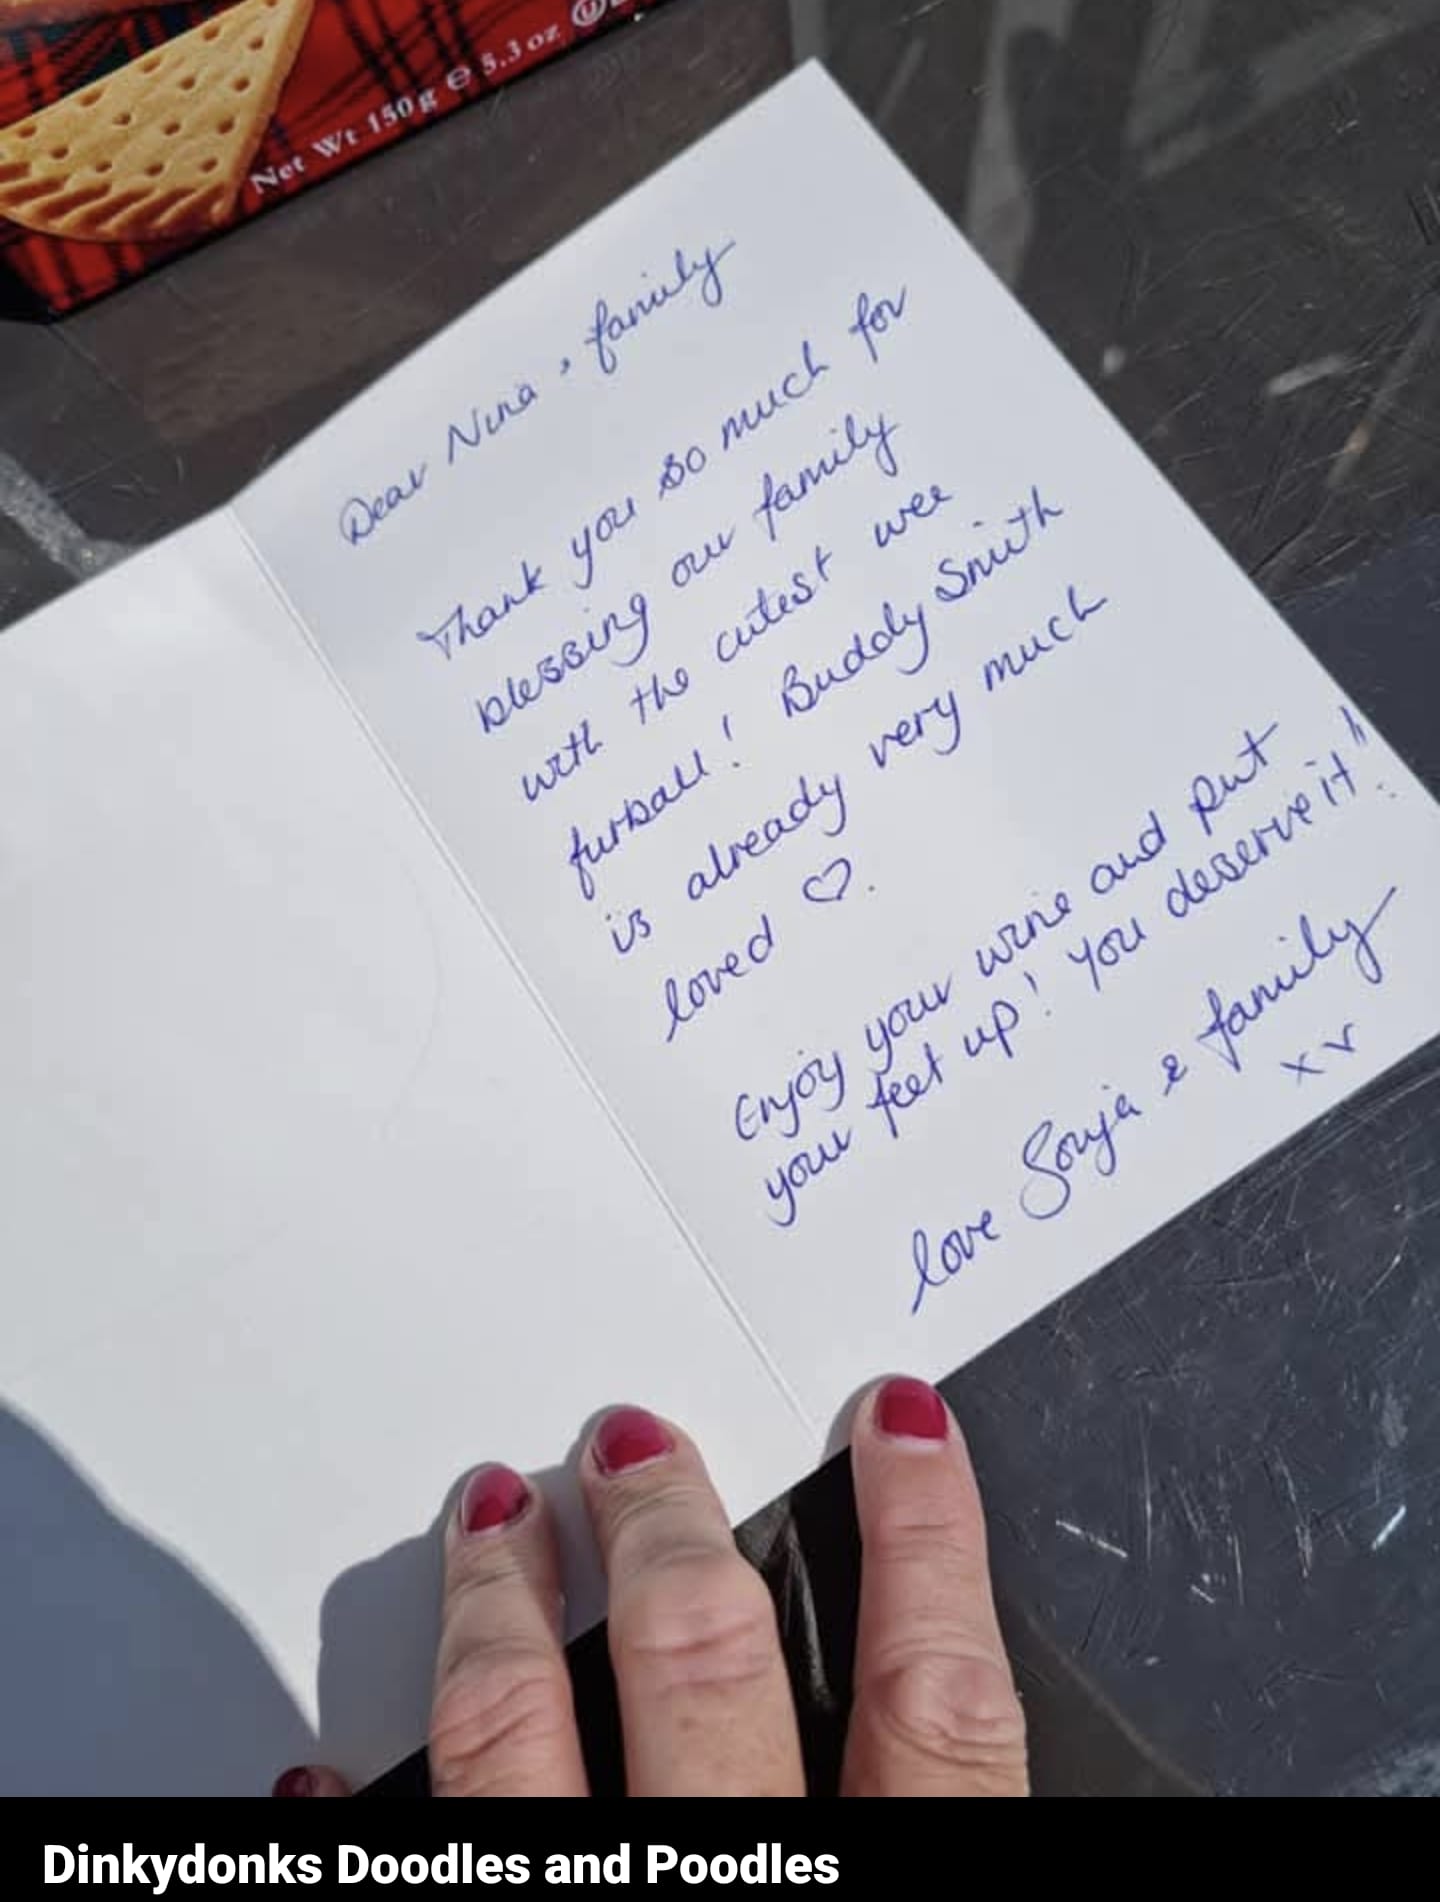 Net Wt 150g e 5.3 oz U
Dear Nina & family
Thank you so much for
blessing our family
with the cutest wee
furball! Buddy Smith
is already very much
loved ♡.
Enjoy your wine and put
your feet up! You deserve it!!
love Sonja & family
xx
Dinkydonks Doodles and Poodles